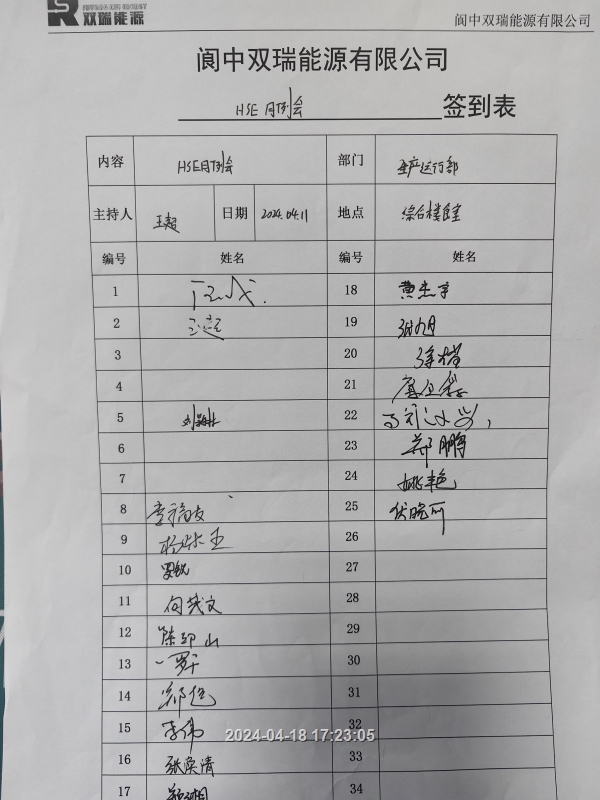 双瑞能源
阆中双瑞能源有限公司
阆中双瑞能源有限公司
HSE 月例会 签到表
内容 HSE月例会 部门 生产运行部
主持人 王超 日期 2024.04.11 地点 综合楼食堂
编号 姓名 编号 姓名
1 18 黄杰宇
2 王超 19 张旭
3 20
4 21
5 22
6 23 郑鹏
7 24 姚艳
8 李福友 25 伏晓丽
9 26
10 罗锐 27
11 向茂文 28
12 陈邵山 29
13 罗 30
14 31
15 李伟 32
2024-04-18 17:23:05
16 张焕清 33
17 34